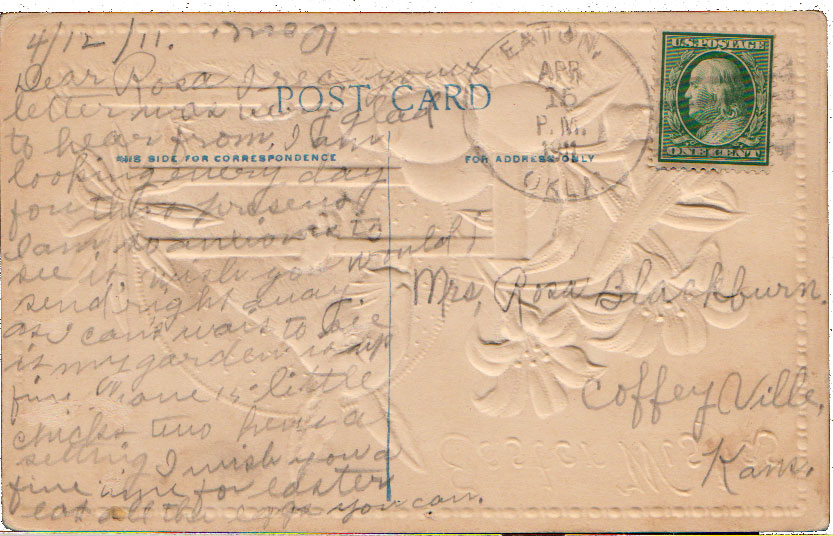 4/12/11.
Dear Rosa I rec. your
letter was glad
to hear from. I am
looking every day
for that present
I am so anxious to
see it wish you would
send right away
as I cant wait to see
it my garden is up
fine little
chicks two hens a
setting I wish you a
fine time for easter
eat all the eggs you can.
POST CARD
THIS SIDE FOR CORRESPONDENCE
FOR ADDRESS ONLY
EATON,
APR
15
P.M.
1911
OKLA.
U.S. POSTAGE
ONE CENT
Mrs. Rosa Blackburn.
Coffey Ville,
Kans.
Easter